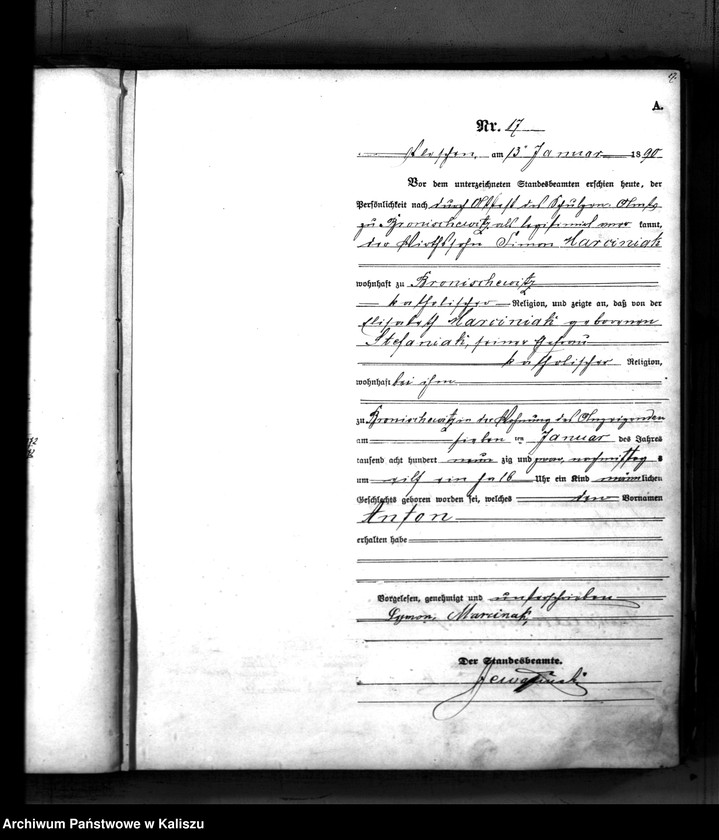 A.
Nr. 17
Pleschen, am 13 Januar 1890
Vor dem unterzeichneten Standesbeamten erschien heute, der
Persönlichkeit nach durch Attest des Schulzen
zu Bronischewitz als legitimiert kannt,
der Wirthssohn Simon Marciniak
wohnhaft zu Bronischewitz
katholischer Religion, und zeigte an, daß von der
Elisabeth Marciniak geborenen
Stefaniak, seiner Ehefrau
katholischer Religion,
wohnhaft bei ihm
zu Bronischewitz in der Wohnung des Anzeigenden
am sieben ten Januar des Jahres
tausend acht hundert neun zig und zwar nachmittag s
um eilf ein halb Uhr ein Kind männlichen
Geschlechts geboren worden sei, welches den Vornamen
Anton
erhalten habe
Vorgelesen, genehmigt und unterschrieben
Symon Marcinak
Der Standesbeamte.
Archiwum Państwowe w Kaliszu